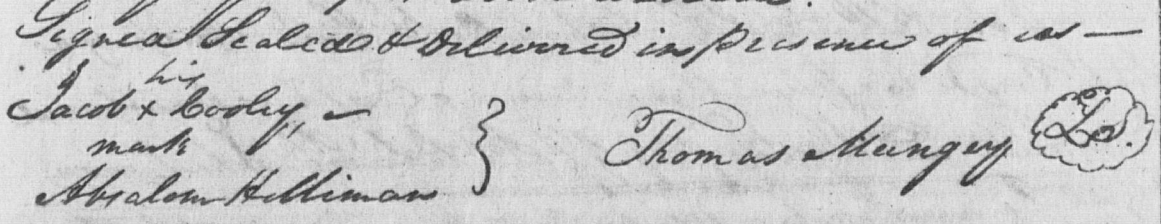 Signed Sealed & Delivered in presence of us —
his
Jacob x Cooley,
mark
Absalom Hilliman
Thomas Mungey L.S.